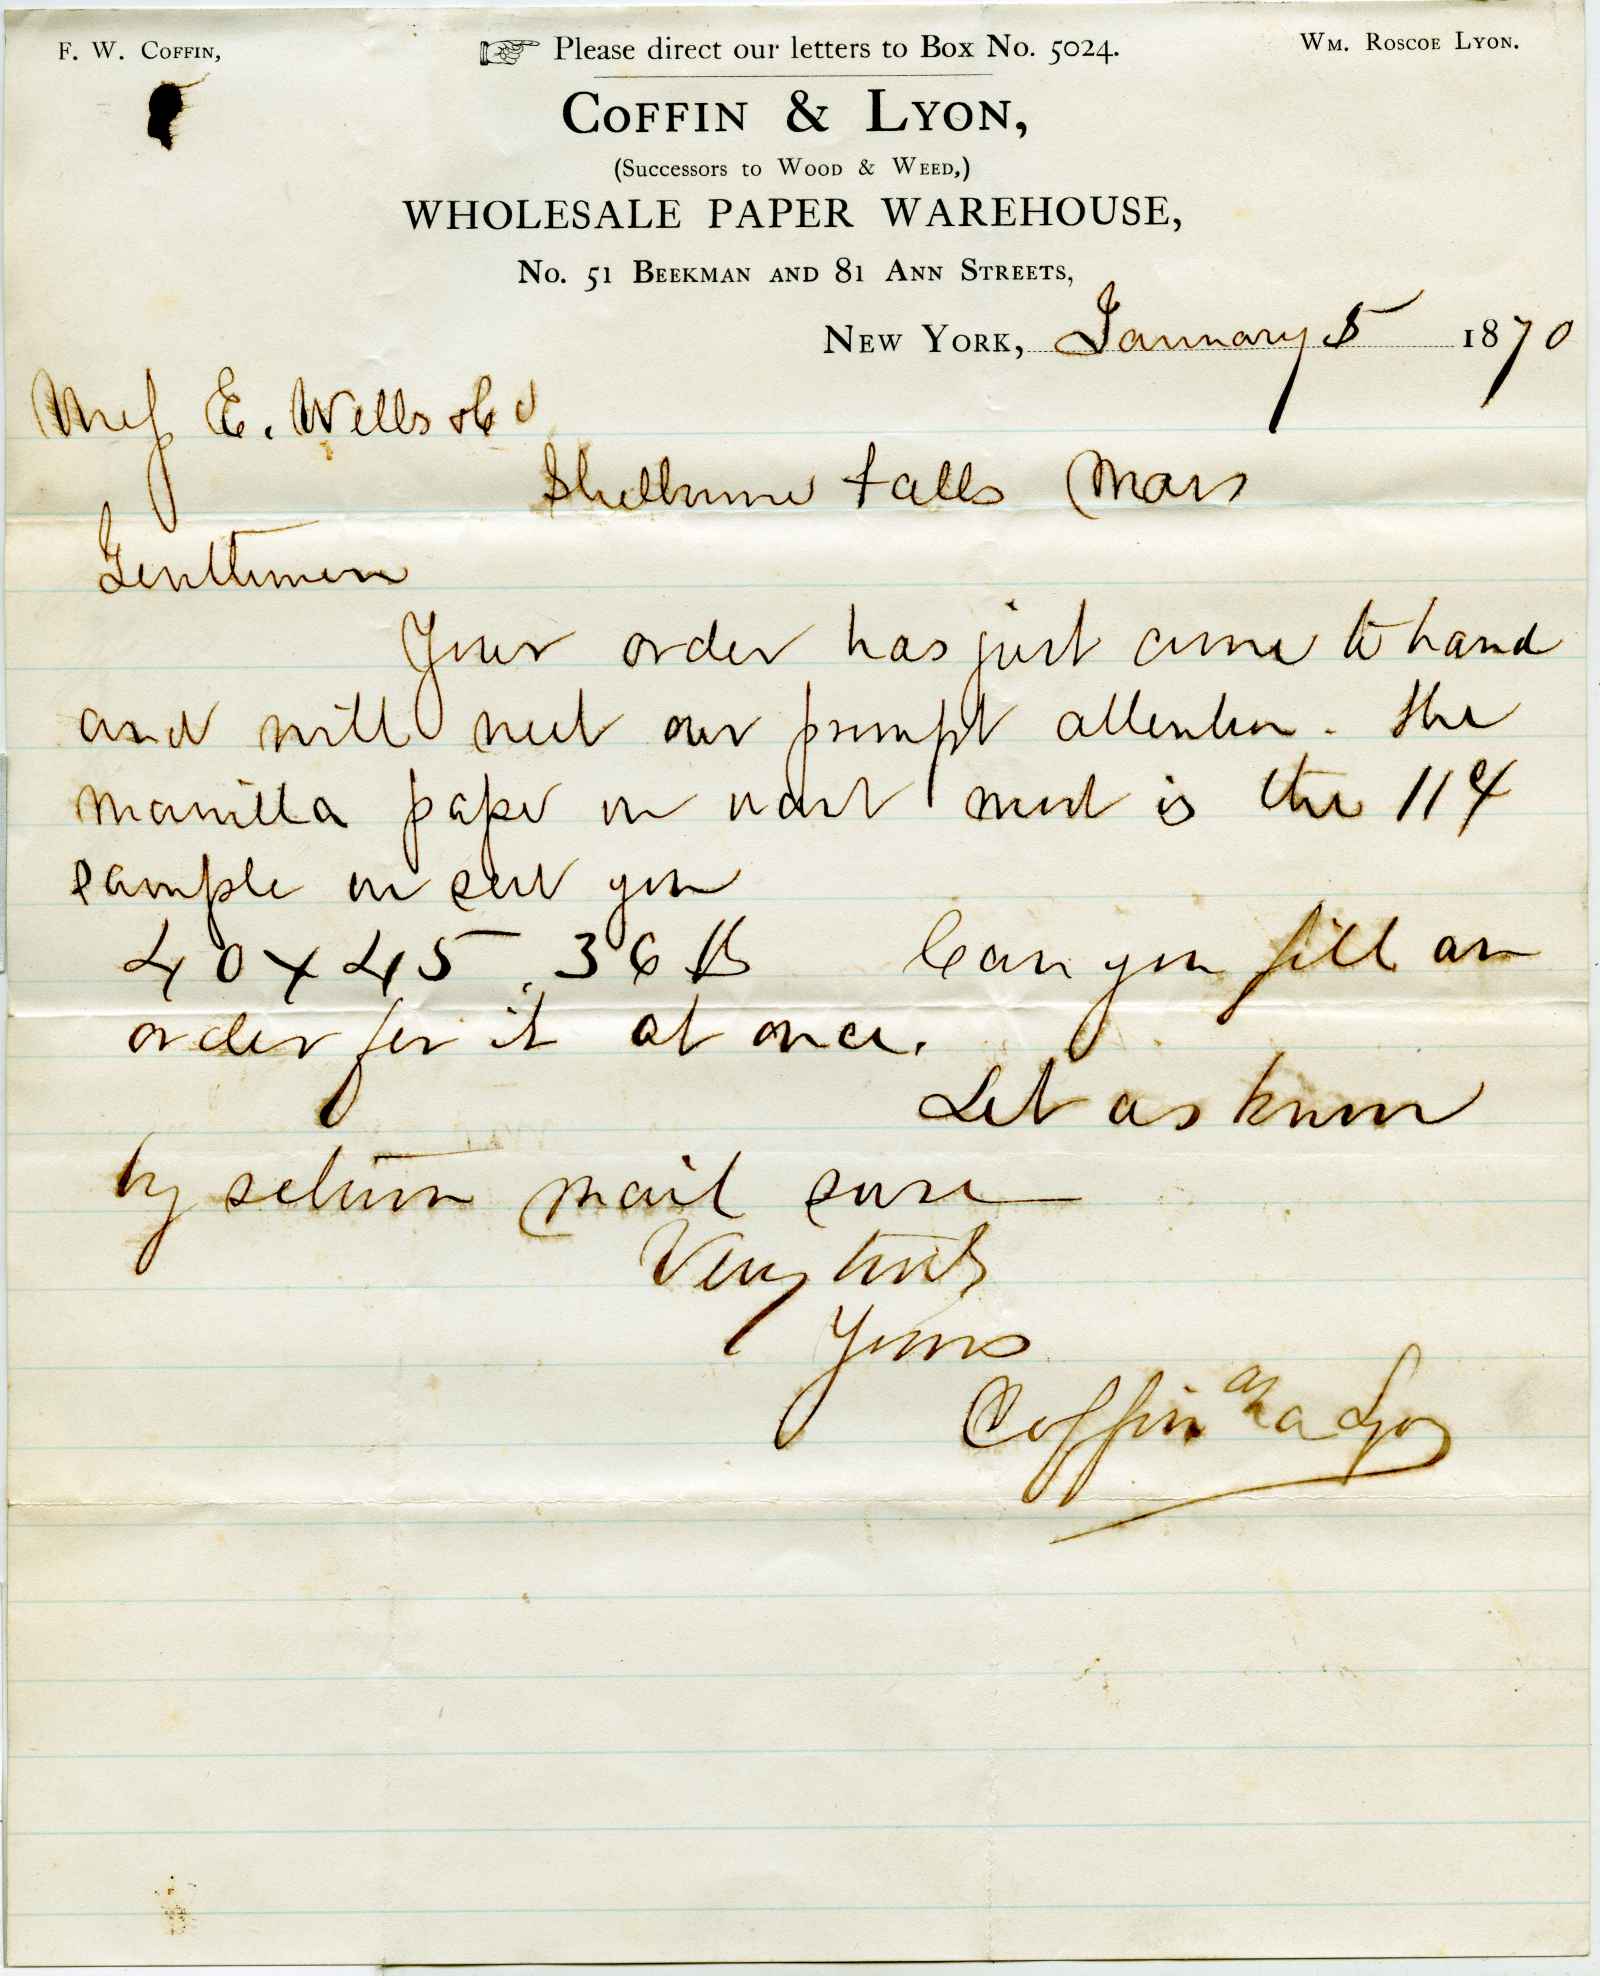 F. W. Coffin,
Please direct our letters to Box No. 5024.
Wm. Roscoe Lyon.
Coffin & Lyon,
(Successors to Wood & Weed,)
WHOLESALE PAPER WAREHOUSE,
No. 51 Beekman and 81 Ann Streets,
New York, January 5 1870
Mess E. Wells & Co
Shelburne Falls Mass
Gentlemen
Your order has just come to hand
and will meet our prompt attention. The
manilla paper we want most is the 11¢
sample we sent you
40 x 45. 36 lb Can you fill an
order for it at once.
Let us know
by return mail sure
Very truly
Yours
Coffin & Lyon